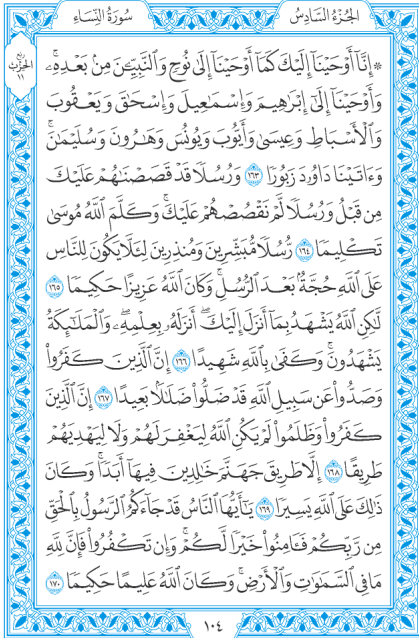 الجُزْءُ السَّادِسُ
سُورَةُ النِّسَاءِ
رُبْع الحِزْب ١١
۞ إِنَّآ أَوْحَيْنَآ إِلَيْكَ كَمَآ أَوْحَيْنَآ إِلَىٰ نُوحٍ وَٱلنَّبِيِّـۧنَ مِنۢ بَعْدِهِۦۚ
وَأَوْحَيْنَآ إِلَىٰٓ إِبْرَٰهِيمَ وَإِسْمَٰعِيلَ وَإِسْحَٰقَ وَيَعْقُوبَ
وَٱلْأَسْبَاطِ وَعِيسَىٰ وَأَيُّوبَ وَيُونُسَ وَهَٰرُونَ وَسُلَيْمَٰنَۚ
وَءَاتَيْنَا دَاوُۥدَ زَبُورًا ١٦٣ وَرُسُلًا قَدْ قَصَصْنَٰهُمْ عَلَيْكَ
مِن قَبْلُ وَرُسُلًا لَّمْ نَقْصُصْهُمْ عَلَيْكَۚ وَكَلَّمَ ٱللَّهُ مُوسَىٰ
تَكْلِيمًا ١٦٤ رُّسُلًا مُّبَشِّرِينَ وَمُنذِرِينَ لِئَلَّا يَكُونَ لِلنَّاسِ
عَلَى ٱللَّهِ حُجَّةٌۢ بَعْدَ ٱلرُّسُلِۚ وَكَانَ ٱللَّهُ عَزِيزًا حَكِيمًا ١٦٥
لَّٰكِنِ ٱللَّهُ يَشْهَدُ بِمَآ أَنزَلَ إِلَيْكَۖ أَنزَلَهُۥ بِعِلْمِهِۦۖ وَٱلْمَلَٰٓئِكَةُ
يَشْهَدُونَۚ وَكَفَىٰ بِٱللَّهِ شَهِيدًا ١٦٦ إِنَّ ٱلَّذِينَ كَفَرُوا۟
وَصَدُّوا۟ عَن سَبِيلِ ٱللَّهِ قَدْ ضَلُّوا۟ ضَلَٰلًۢا بَعِيدًا ١٦٧ إِنَّ ٱلَّذِينَ
كَفَرُوا۟ وَظَلَمُوا۟ لَمْ يَكُنِ ٱللَّهُ لِيَغْفِرَ لَهُمْ وَلَا لِيَهْدِيَهُمْ
طَرِيقًا ١٦٨ إِلَّا طَرِيقَ جَهَنَّمَ خَٰلِدِينَ فِيهَآ أَبَدًاۚ وَكَانَ
ذَٰلِكَ عَلَى ٱللَّهِ يَسِيرًا ١٦٩ يَٰٓأَيُّهَا ٱلنَّاسُ قَدْ جَآءَكُمُ ٱلرَّسُولُ بِٱلْحَقِّ
مِن رَّبِّكُمْ فَـَٔامِنُوا۟ خَيْرًا لَّكُمْۚ وَإِن تَكْفُرُوا۟ فَإِنَّ لِلَّهِ
مَا فِى ٱلسَّمَٰوَٰتِ وَٱلْأَرْضِۚ وَكَانَ ٱللَّهُ عَلِيمًا حَكِيمًا ١٧٠
١٠٤